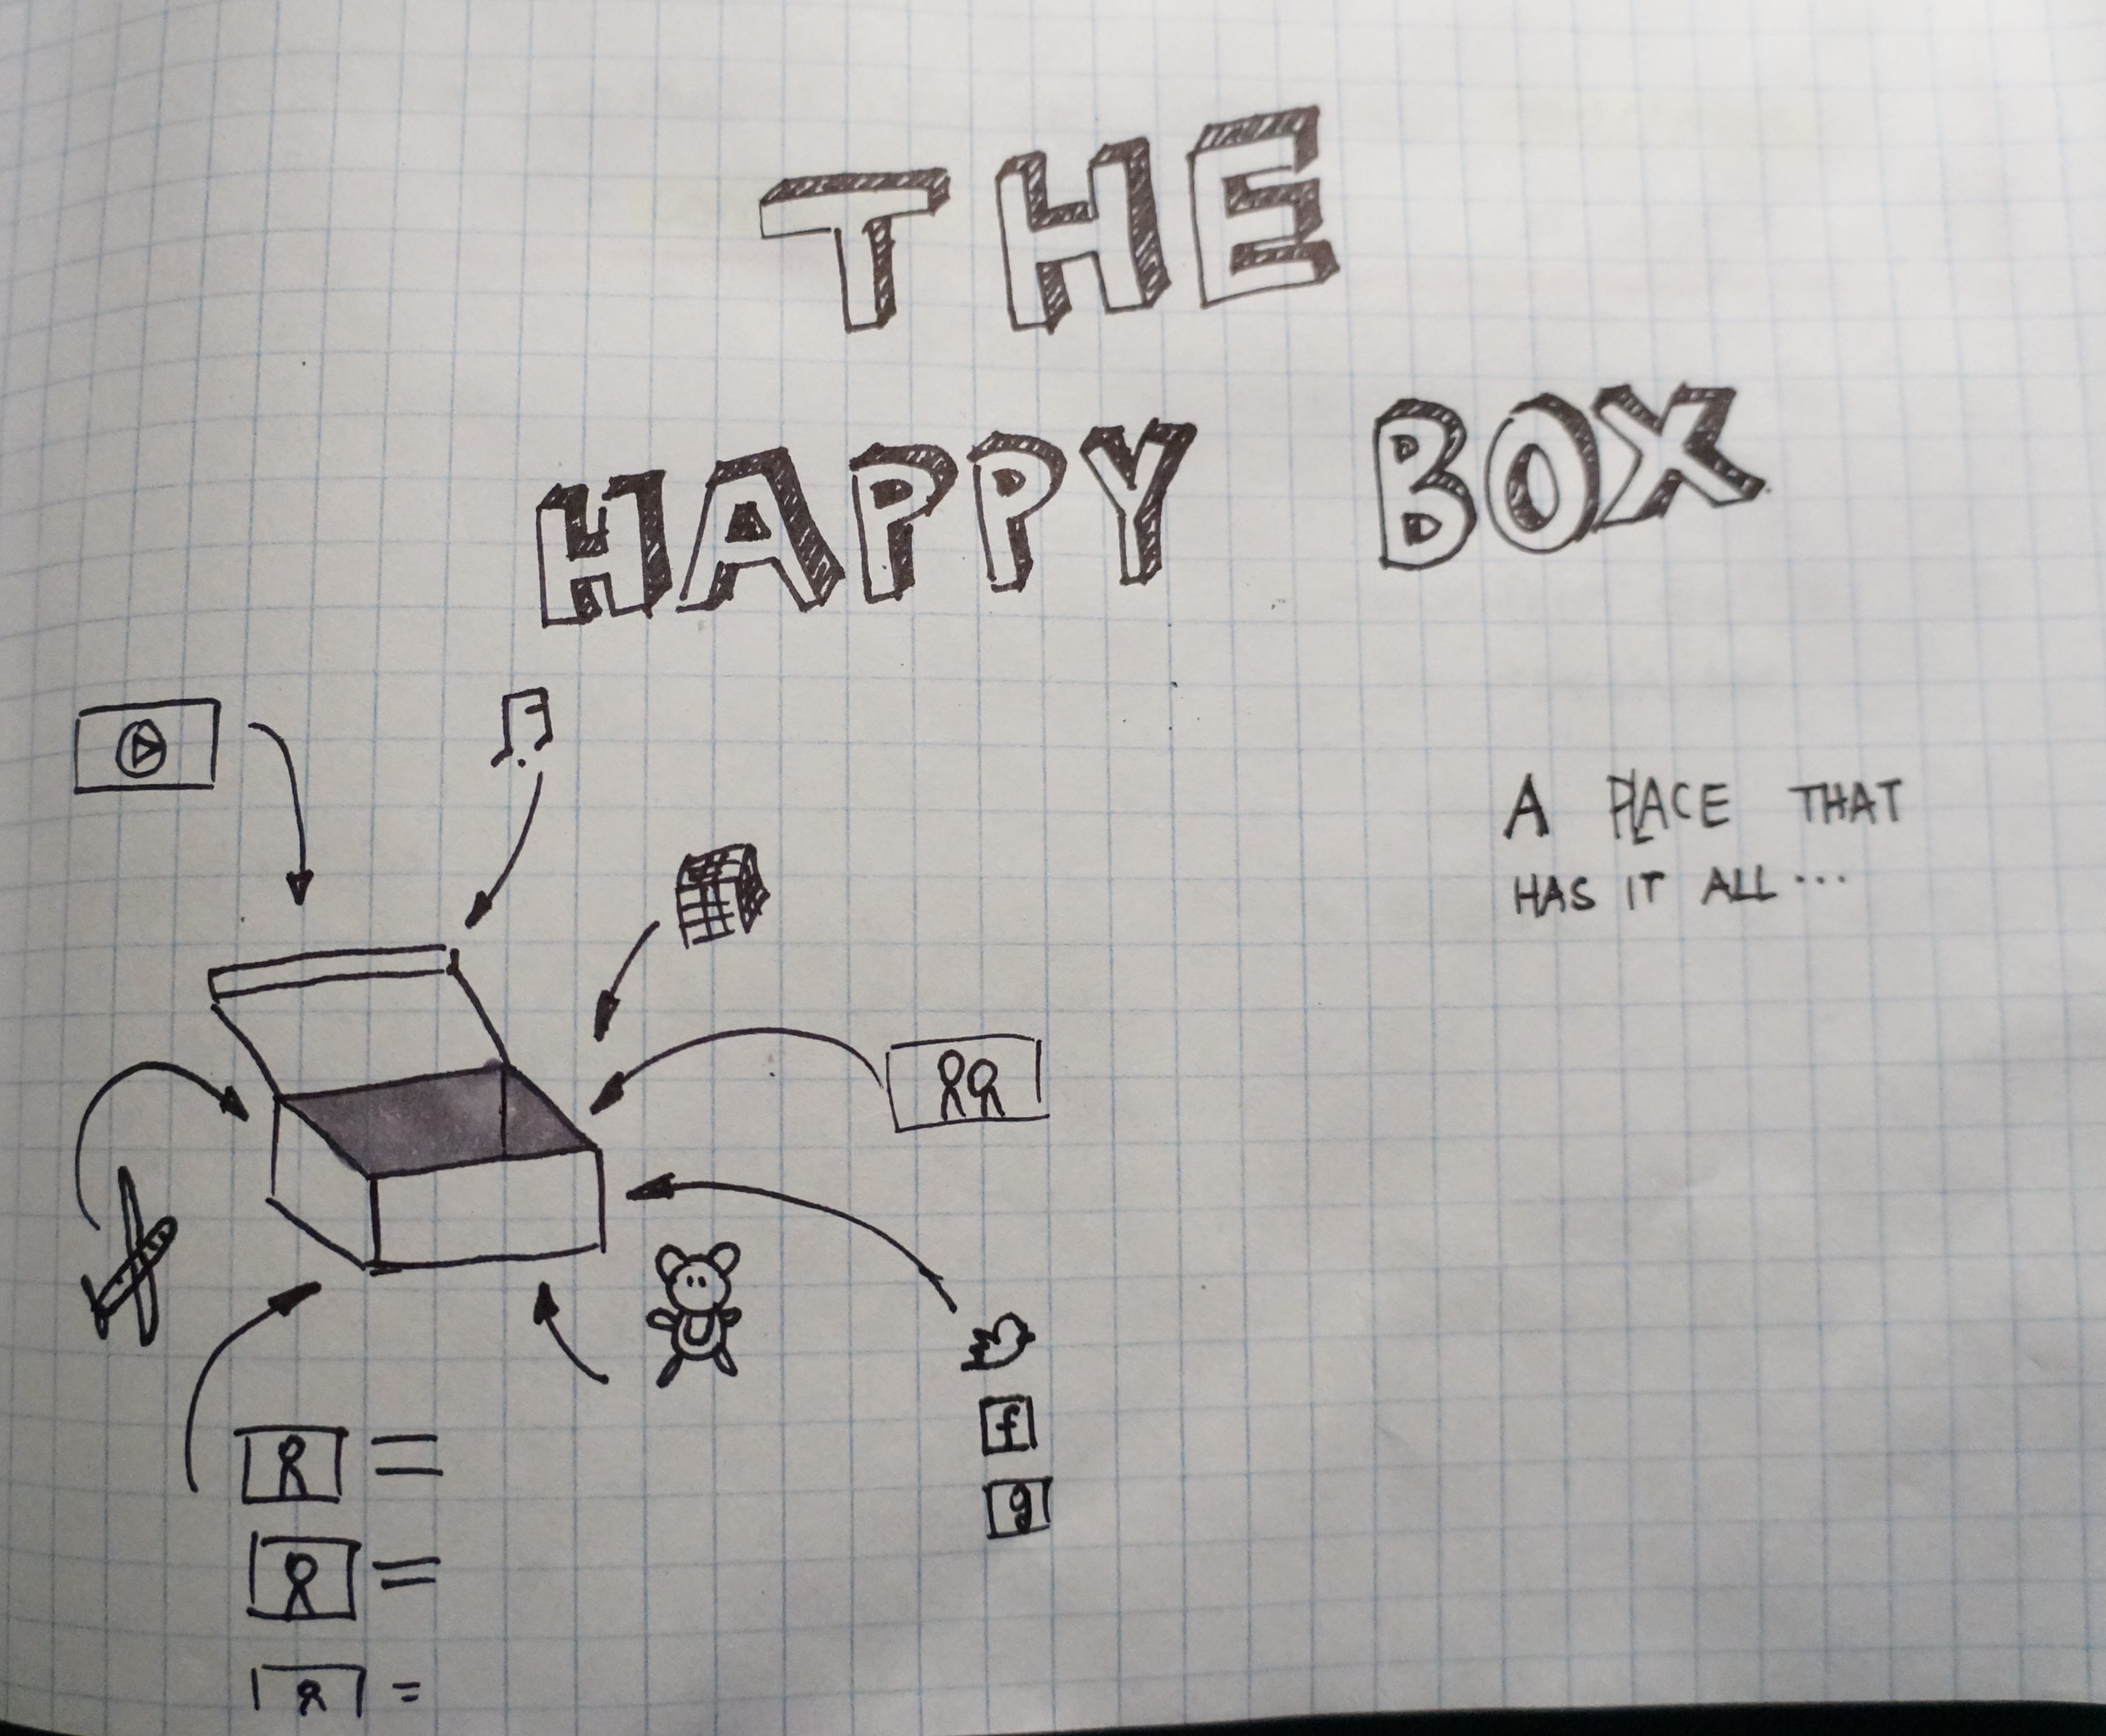 THE
HAPPY BOX
A PLACE THAT
HAS IT ALL...
f
g